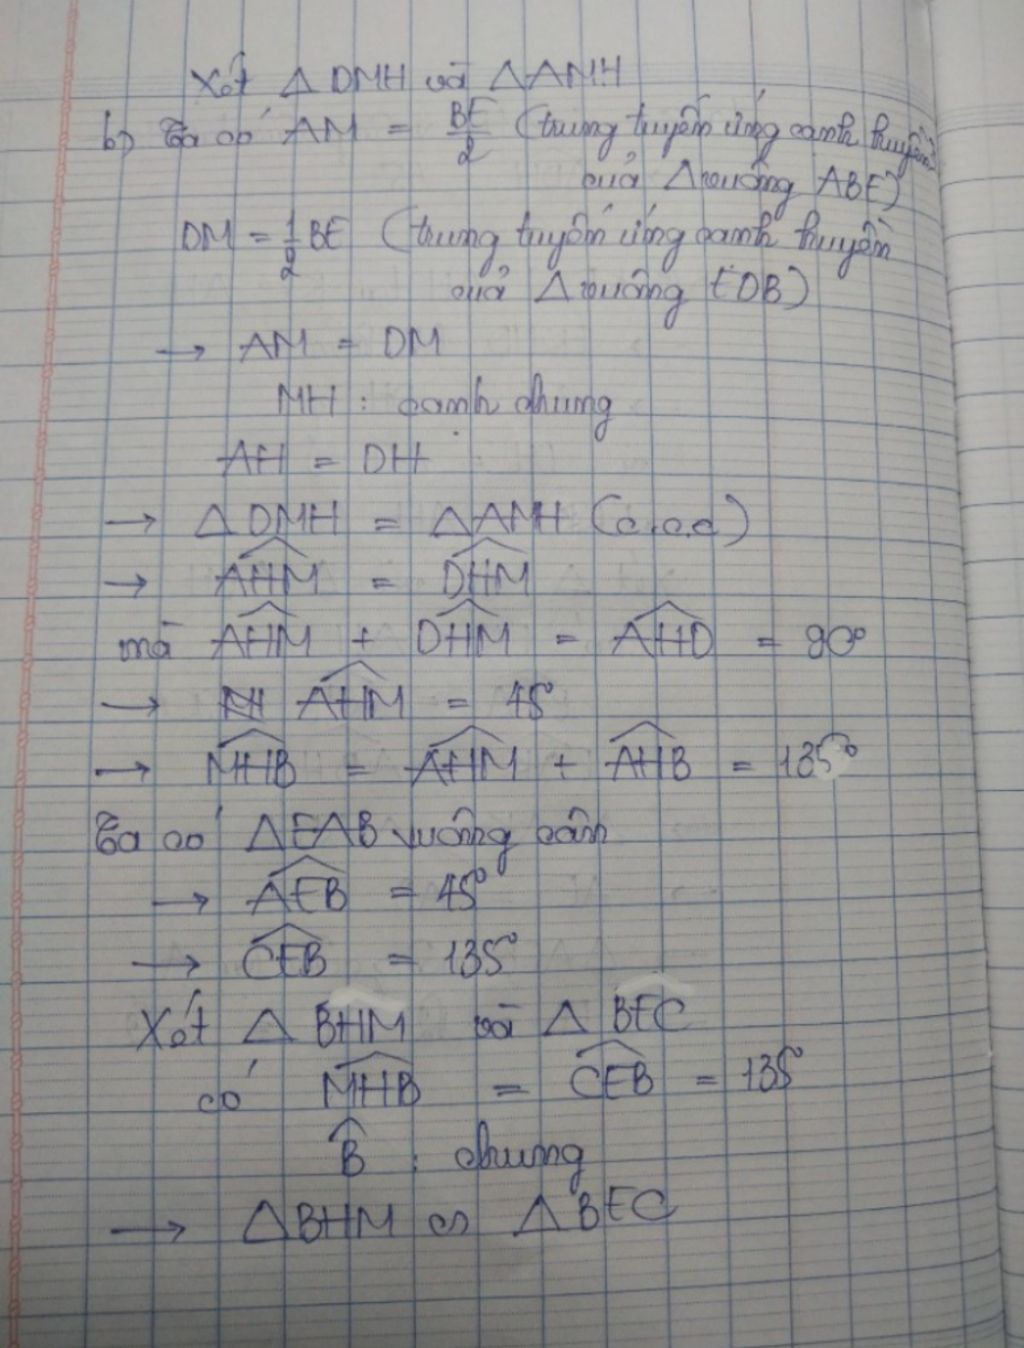 Xét Δ DMH và Δ AMH
b) Ta có AM = BE/2 (trung tuyến ứng cạnh huyền
của Δ vuông ABE)
DM = 1/2 BE (trung tuyến ứng cạnh huyền
của Δ vuông EDB)
→ AM = DM
MH : cạnh chung
AH = DH
→ Δ DMH = Δ AMH (c.c.c)
→ \widehat{AHM} = \widehat{DHM}
mà \widehat{AHM} + \widehat{DHM} = \widehat{AHD} = 90°
→ \widehat{AHM} = 45°
→ \widehat{MHB} = \widehat{AHM} + \widehat{AHB} = 135°
Ta có ΔEAB vuông cân
→ \widehat{AEB} = 45°
→ \widehat{CEB} = 135°
Xét Δ BHM và Δ BEC
có \widehat{MHB} = \widehat{CEB} = 135°
\widehat{B} : chung
→ ΔBHM ∽ Δ BEC